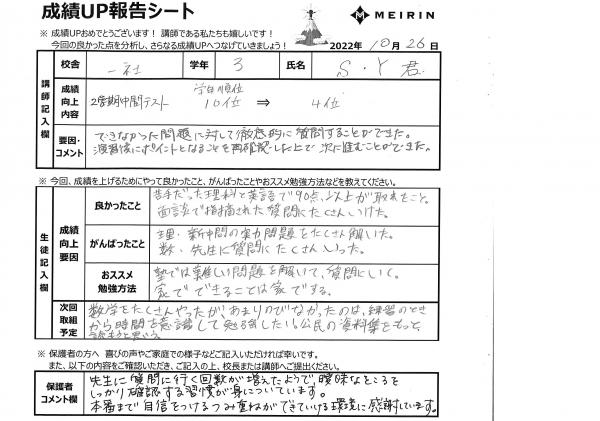 成績UP報告シート
MEIRIN
※ 成績UPおめでとうございます! 講師である私たちも嬉しいです!
今回の良かった点を分析し、さらなる成績UPへつなげていきましょう!
2022年 10月 26日
校舎 一社 学年 3 氏名 S.Y 君
講師記入欄
成績向上内容
2学期中間テスト 学年順位 10位 ⇒ 4位
要因・コメント
できなかった問題に対して徹底的に質問することができた。
演習後にポイントとなることを再確認した上で次に進むことができた。
※ 今回、成績を上げるためにやって良かったこと、がんばったことやおススメ勉強方法などを教えてください。
生徒記入欄
成績向上要因
良かったこと
苦手だった理科と英語で90点以上が取れたこと。
面談で指摘された質問にたくさんいけた。
がんばったこと
理・新中問の実力問題をたくさん解いた。
数・先生に質問にたくさんいった。
おススメ勉強方法
塾では難しい問題を解いて、質問にいく。
家でできることは家でする。
次回取組予定
数学をたくさんやったが、あまりのびなかったのは、練習のとき
から時間を意識して勉強したい。公民の資料集をもっと、
読もうと思う。
※ 保護者の方へ 喜びの声やご家庭での様子などご記入いただければ幸いです。
また、以下の内容をご確認いただき、ご記入の上、校長または講師へご提出ください。
保護者コメント欄
先生に質問に行く回数が増えたようで曖昧なところを
しっかり確認する習慣が身についています。
本番まで自信をつけるつみ重ねができていける環境に感謝しています。